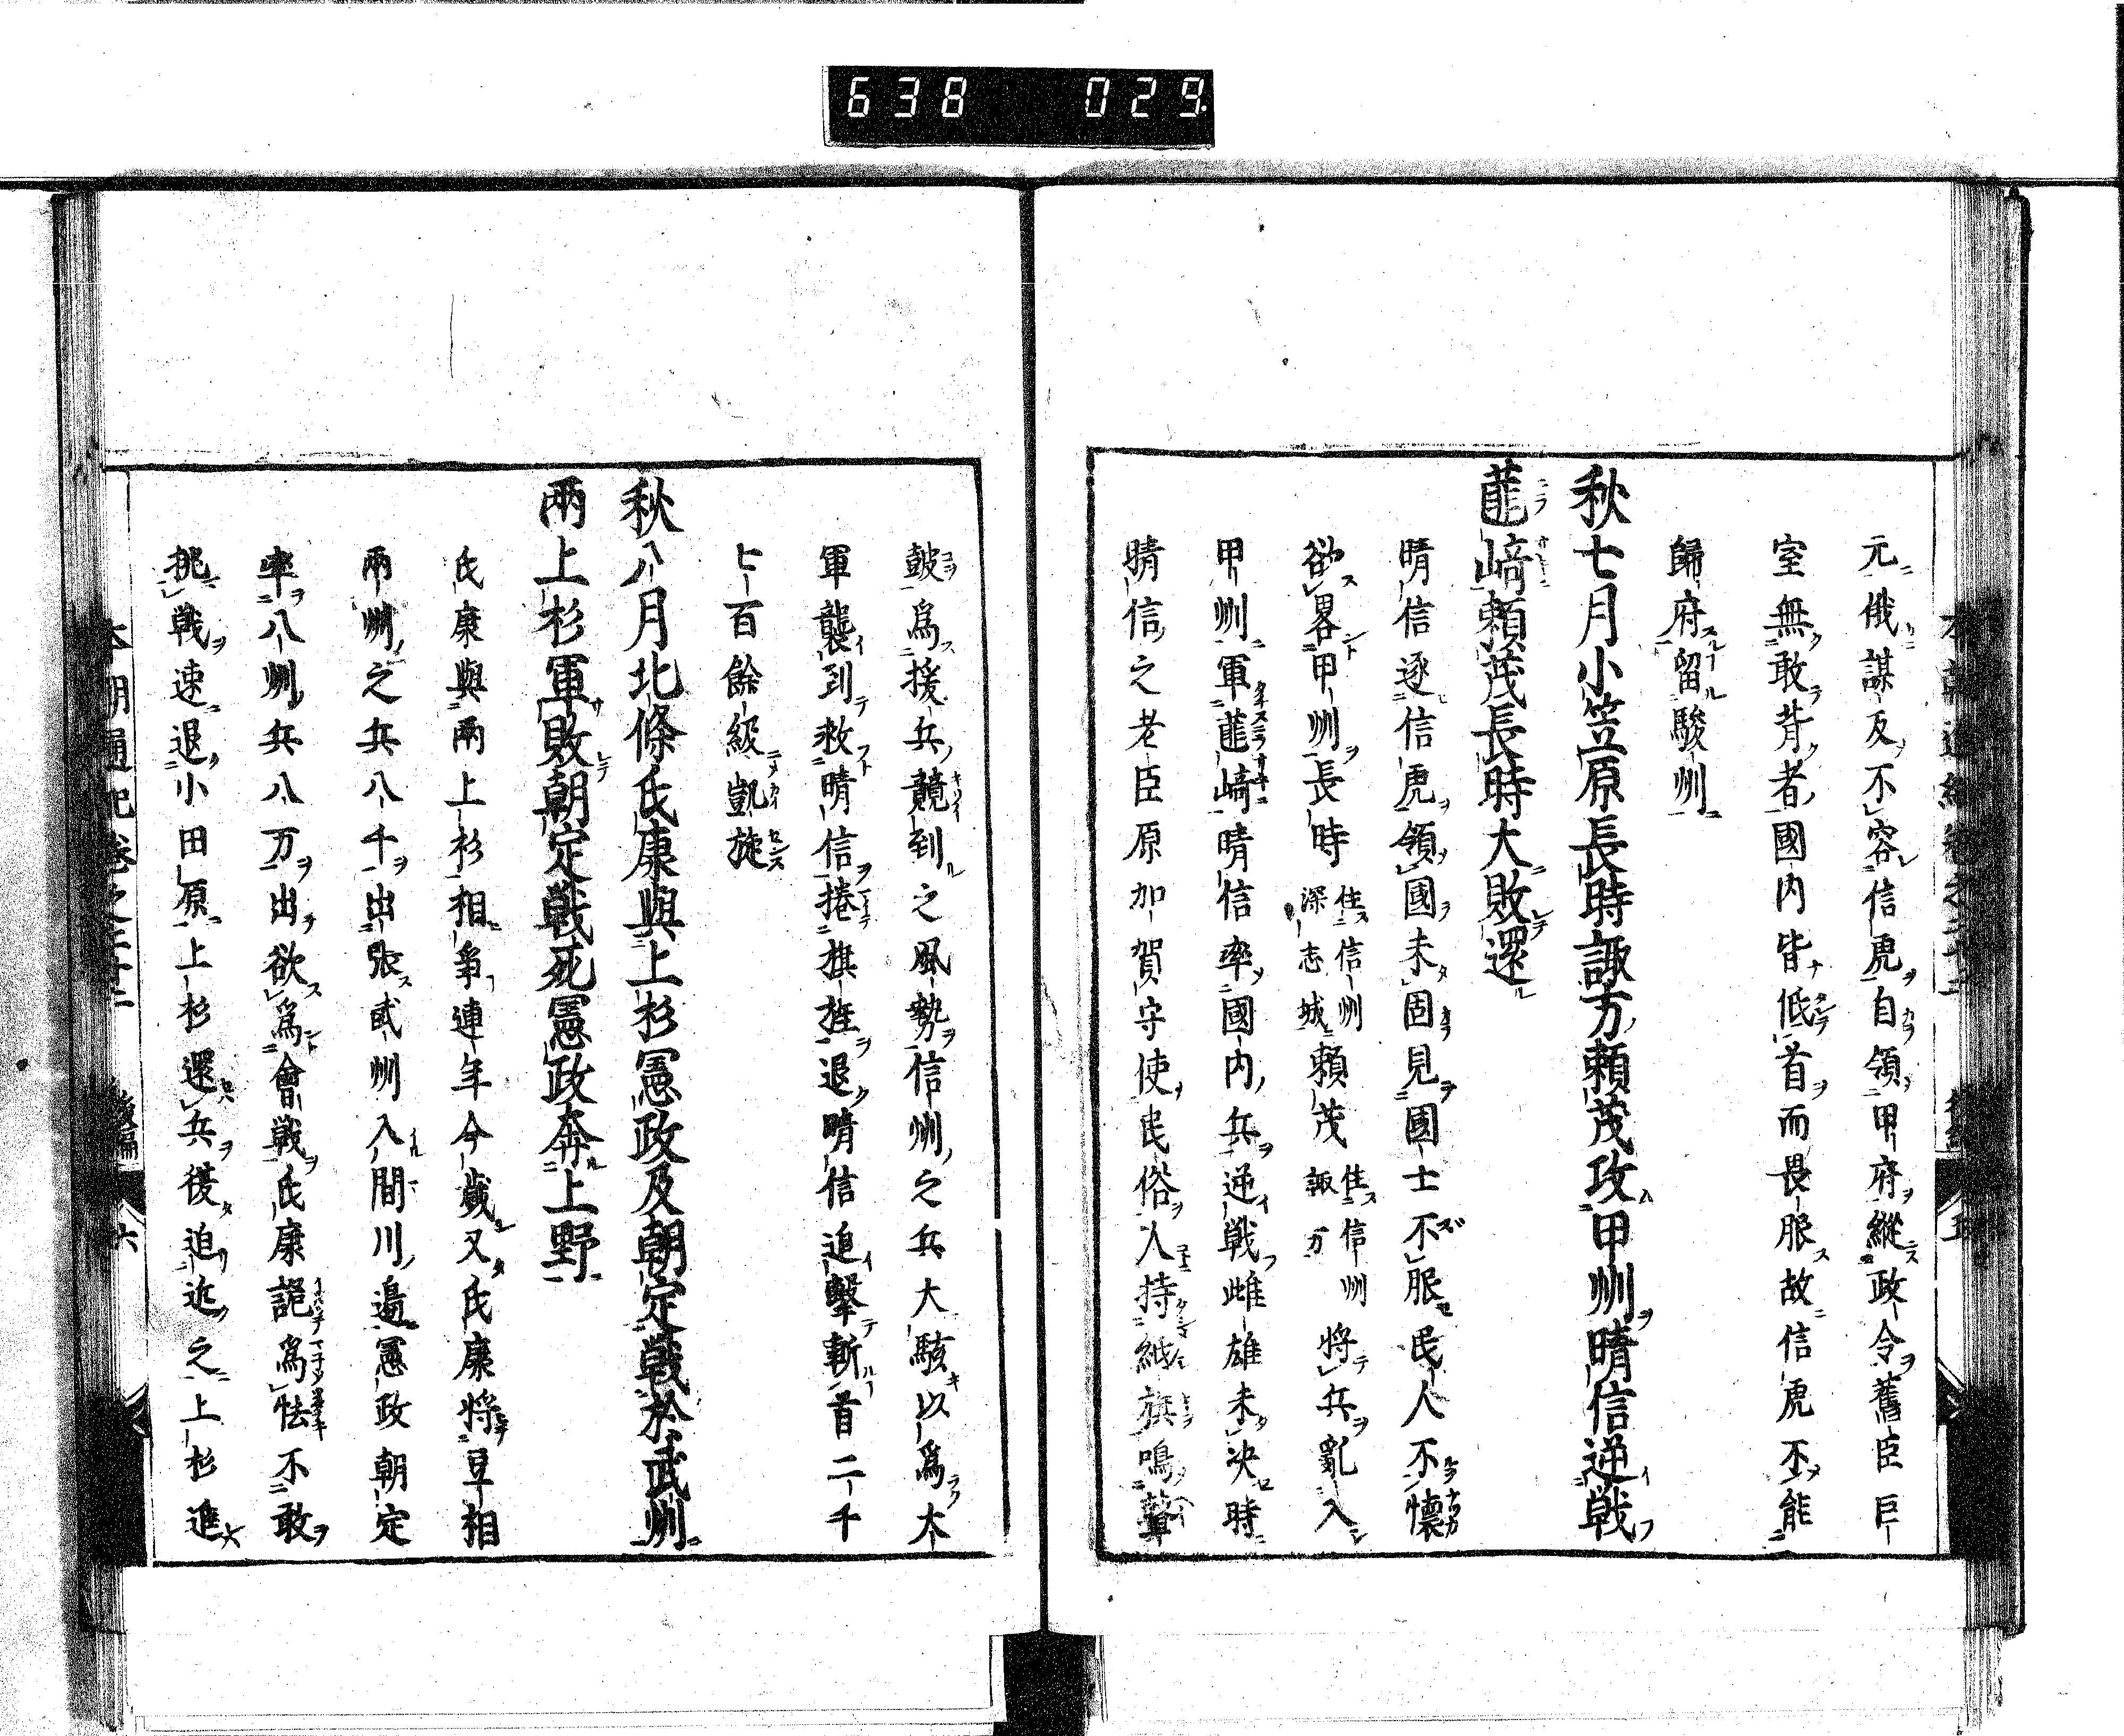 638 029.
元俄謀反不容信虎自領甲府縱政令舊臣巨
室無敢背者國内皆低首而畏服故信虎不能
歸府留駿州
秋七月小笠原長時諏方頼茂攻甲州晴信逆戦
韮﨑頼茂長時大敗還
晴信逐信虎領國未固見國士不服民人不懷
欲畧甲州長時住信州深志城頼茂住信州諏方將兵亂入
甲州軍韮﨑晴信率國内兵逆戦雌雄未決時
晴信之老臣原加賀守使民俗入持紙旗鳴聲
鼓為援兵競到之風勢信州之兵大駭以為大
軍襲到救晴信捲旗旌退晴信追擊斬首二千
七百餘級凱旋
秋八月北條氏康與上杉憲政及朝定戦於武州
兩上杉軍敗朝定戦死憲政奔上野
氏康與兩上杉相爭連年今歲又氏康將豆相
兩州之兵八千出張武州入間川邉憲政朝定
率八州兵八万出欲為會戦氏康詭為怯不敢
挑戦速退小田原上杉還兵後迫近之上杉進
本朝通紀卷之二十二 後編 六